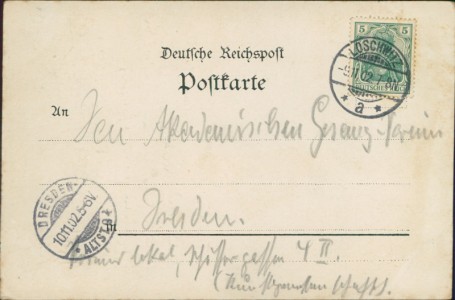 5 5
LOSCHWITZ
11.02.7-
* a *
Deutsche Reichspost
Postkarte
An Den Akademischen Gesang-Verein
DRESDEN-
10.11.02.5-6V
* ALTST.
in Dresden.
lokal, Schössergasse 4 II.